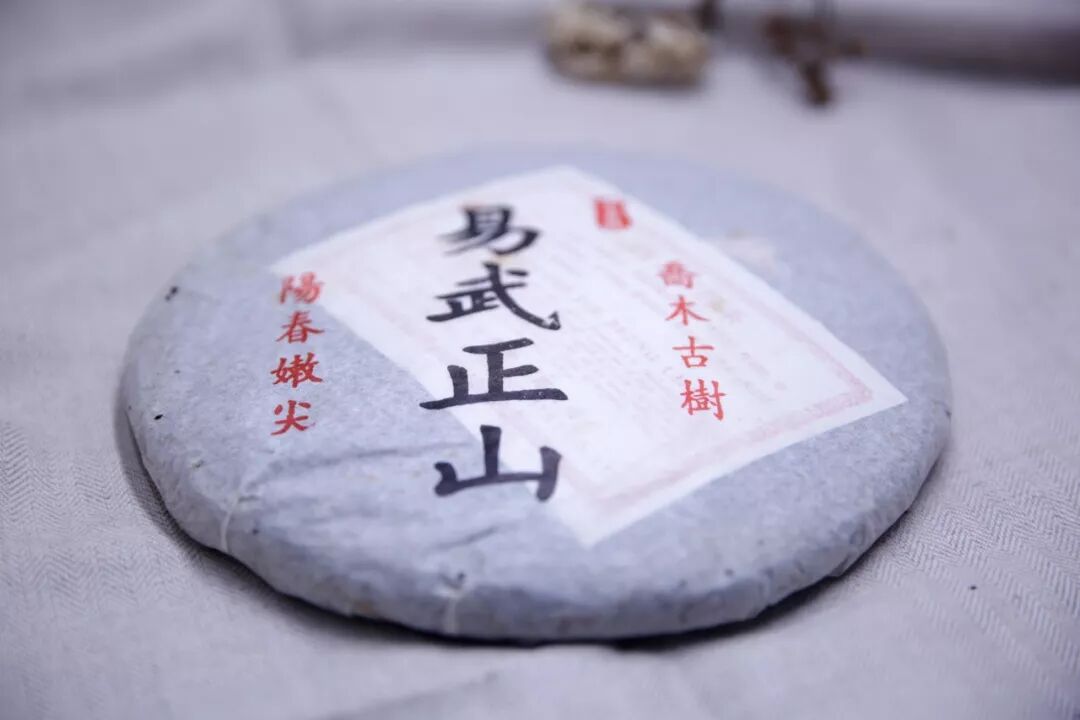 喬木古樹
易武正山
陽春嫩尖